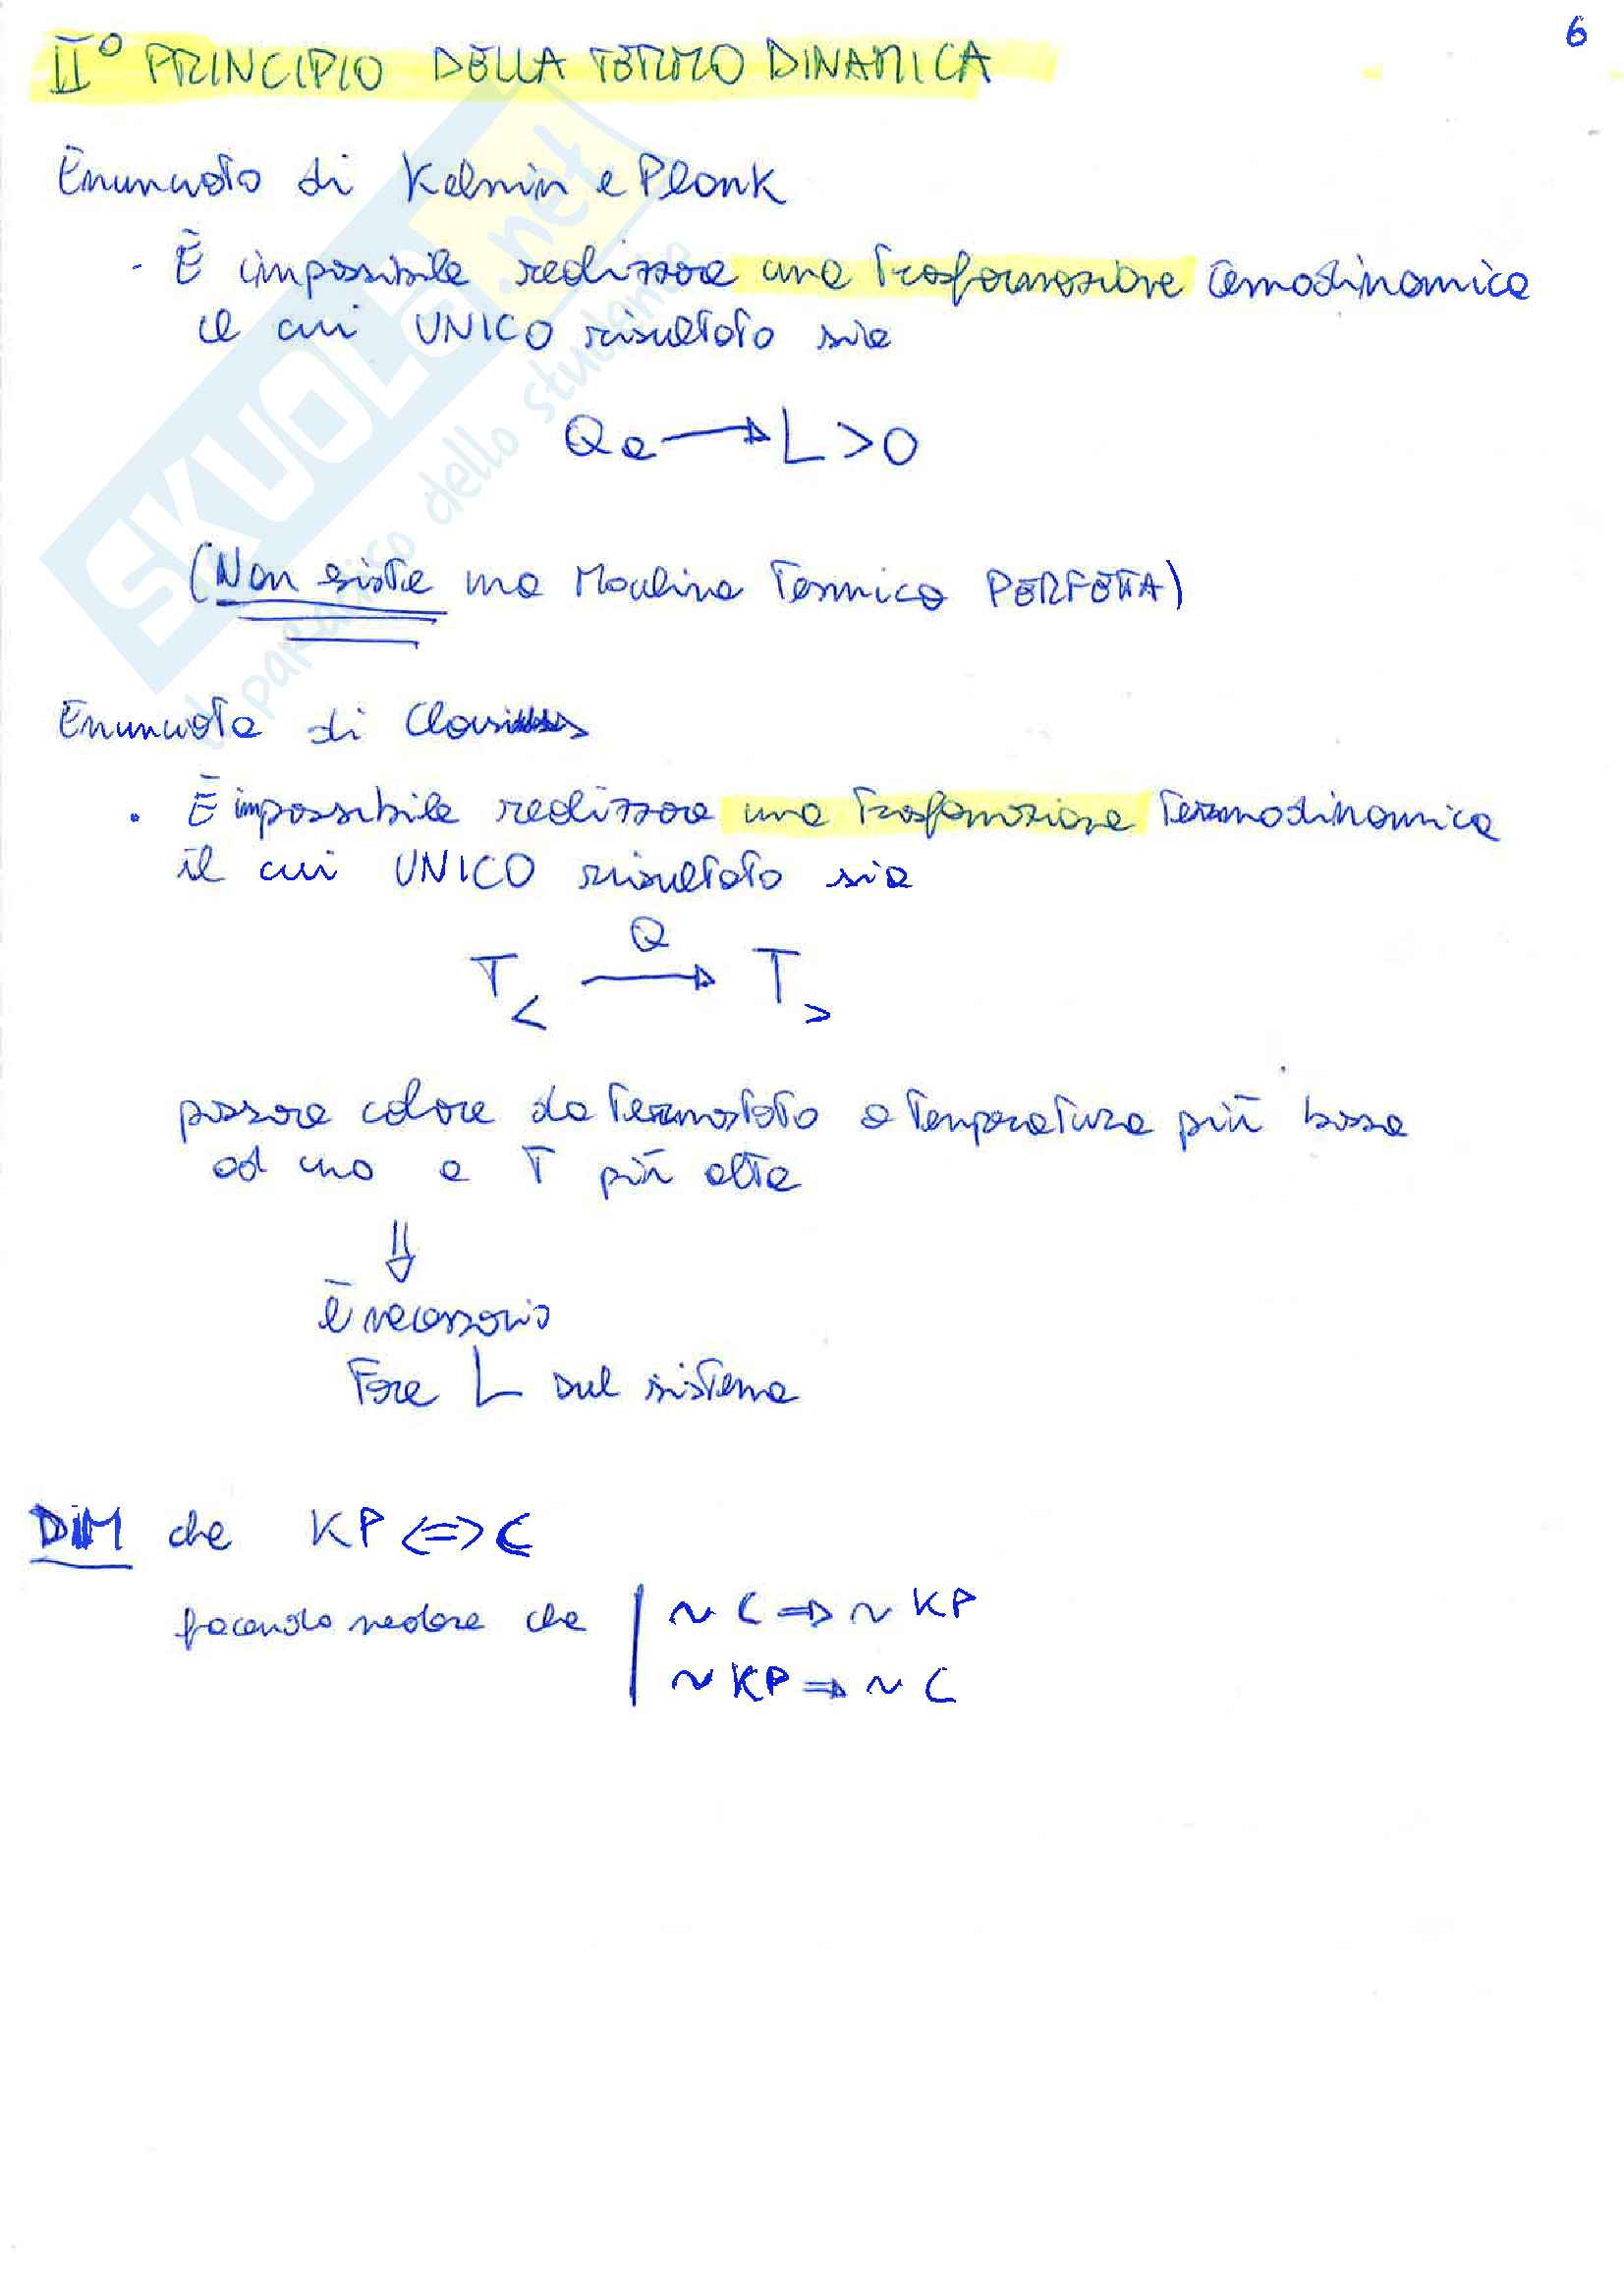 6
II° PRINCIPIO DELLA TERMO DINAMICA
Enunciato di Kelvin e Plank
· È impossibile realizzare una trasformazione termodinamica
il cui UNICO risultato sia
Qa → L > 0
(Non esiste una Macchina Termica PERFETTA)
Enunciato di Clausius
· È impossibile realizzare una trasformazione termodinamica
il cui UNICO risultato sia
Q
T< → T>
passare calore da termostato a temperatura più bassa
ad uno a T più alta
⇓
è necessario
fare L sul sistema
DIM che KP <=> C
facendo vedere che | ~ C ⇒ ~ KP
~ KP ⇒ ~ C
SKUOLA.net
il paradiso dello studente